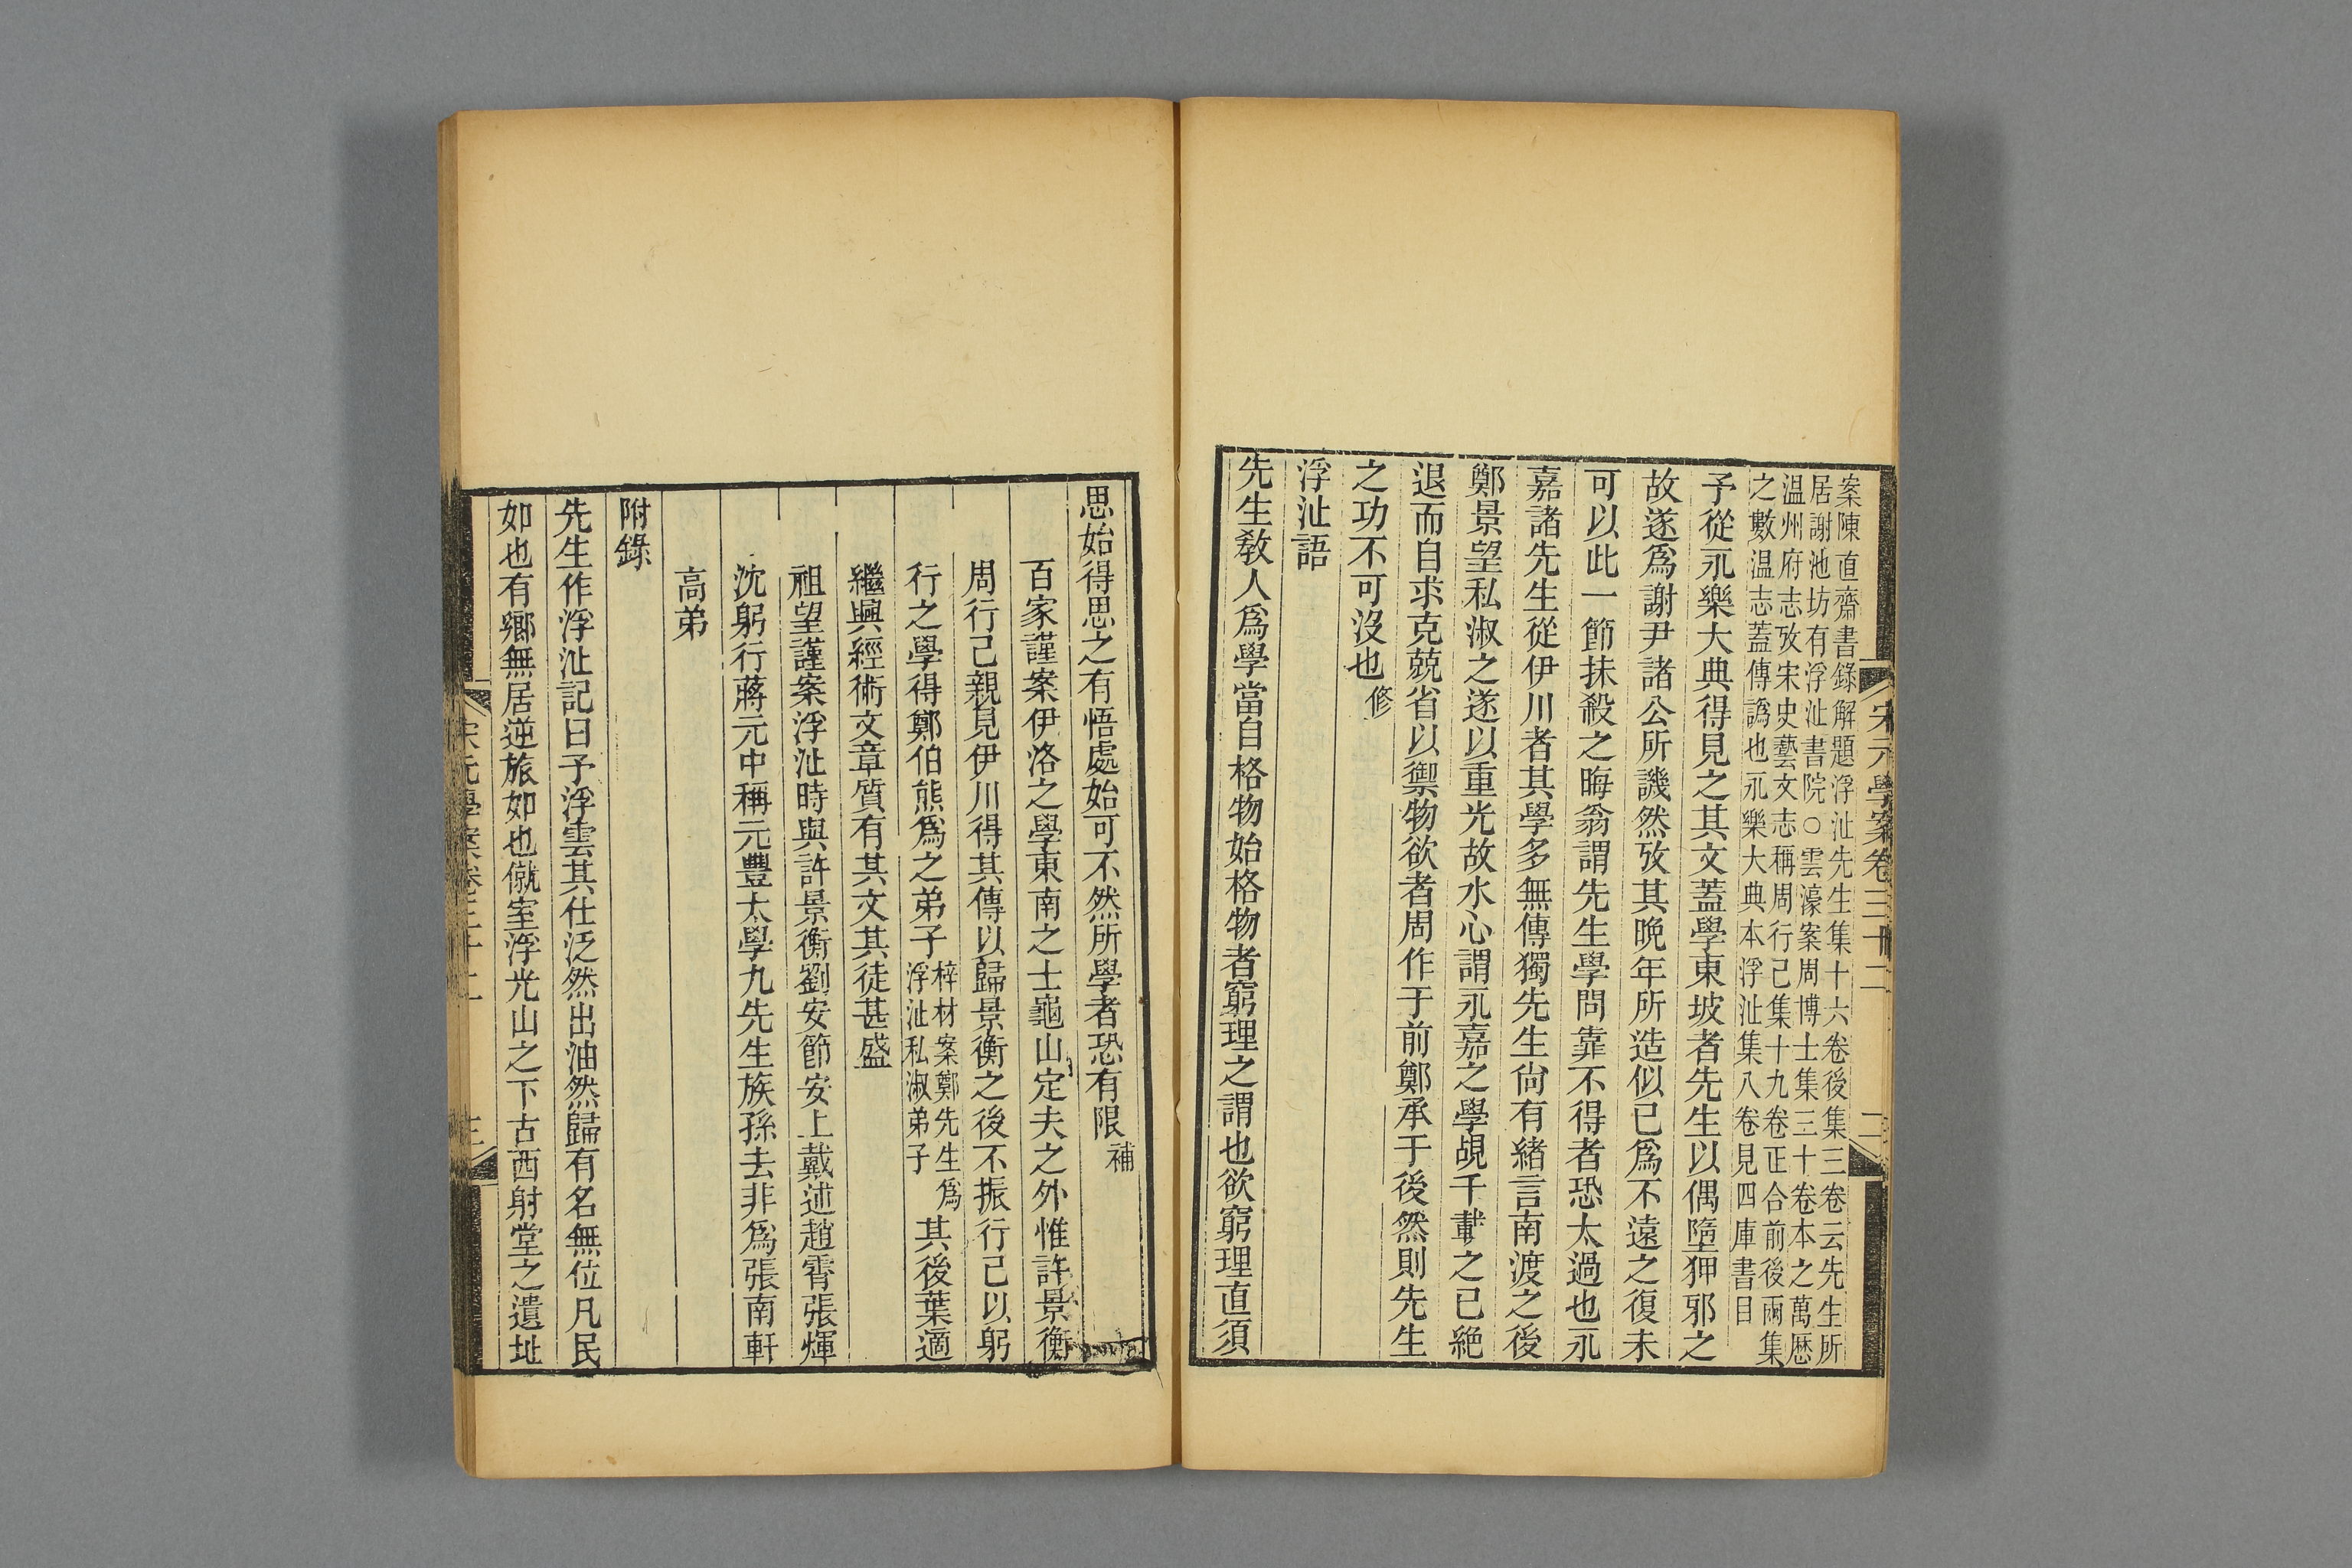 宋元學案卷三十二
二
案陳直齋書錄解題浮沚先生集十六卷後集三卷云先生所
居謝池坊有浮沚書院○雲濠案周博士集三十卷本之萬厯
温州府志攷宋史藝文志稱周行己集十九卷正合前後兩集
之數温志蓋傳譌也永樂大典本浮沚集八卷見四庫書目
予從永樂大典得見之其文蓋學東坡者先生以偶墮狎邪之
故遂爲謝尹諸公所譏然攷其晚年所造似已爲不遠之復未
可以此一節抹殺之晦翁謂先生學問靠不得者恐太過也永
嘉諸先生從伊川者其學多無傳獨先生尙有緒言南渡之後
鄭景望私淑之遂以重光故水心謂永嘉之學覘千載之已絶
退而自求克兢省以禦物欲者周作于前鄭承于後然則先生
之功不可沒也修
浮沚語
先生敎人爲學當自格物始格物者窮理之謂也欲窮理直須
思始得思之有悟處始可不然所學者恐有限補
百家謹案伊洛之學東南之士龜山定夫之外惟許景衡
周行己親見伊川得其傳以歸景衡之後不振行己以躬
行之學得鄭伯熊爲之弟子梓材案鄭先生爲浮沚私淑弟子其後葉適
繼興經術文章質有其文其徒甚盛
祖望謹案浮沚時與許景衡劉安節安上戴述趙霄張煇
沈躬行蔣元中稱元豐太學九先生族孫去非爲張南軒
高弟
附錄
先生作浮沚記曰予浮雲其仕泛然出油然歸有名無位凡民
如也有鄉無居逆旅如也僦室浮光山之下古西射堂之遺址
宋元學案卷三十二
三